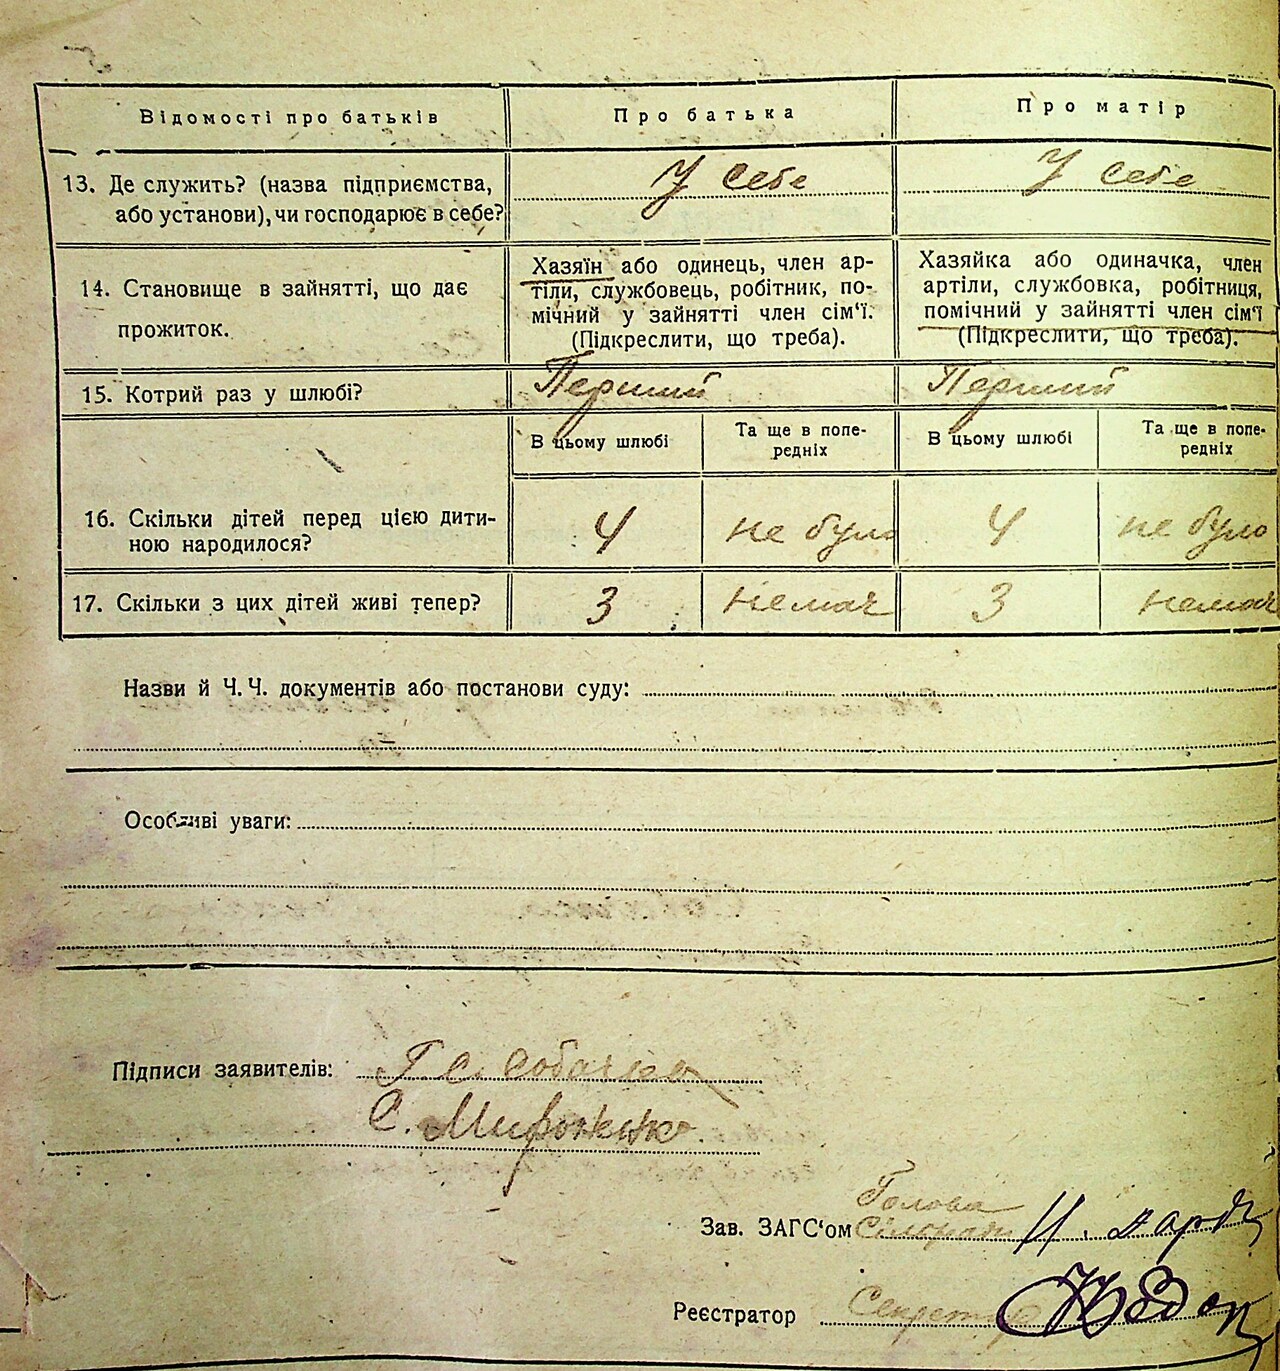 Відомості про батьків
Про батька
Про матір
13. Де служить? (назва підприємства,
або установи), чи господарює в себе?
У себе
У себе
14. Становище в зайнятті, що дає
прожиток.
Хазяїн або одинець, член ар-
тіли, службовець, робітник, по-
мічний у зайнятті член сім'ї.
(Підкреслити, що треба).
Хазяйка або одиначка, член
артіли, службовка, робітниця,
помічний у зайнятті член сім'ї
(Підкреслити, що треба).
15. Котрий раз у шлюбі?
Перший
Перший
В цьому шлюбі
Та ще в попе-
редніх
В цьому шлюбі
Та ще в попе-
редніх
16. Скільки дітей перед цією дити-
ною народилося?
4
не було
4
не було
17. Скільки з цих дітей живі тепер?
3
немає
3
немає
Назви й Ч. Ч. документів або постанови суду:
Особливі уваги:
Підписи заявителів:
Г. С.
С. Мироненко.
Голова
Зав. ЗАГС'ом Сілради
Реєстратор Секретар